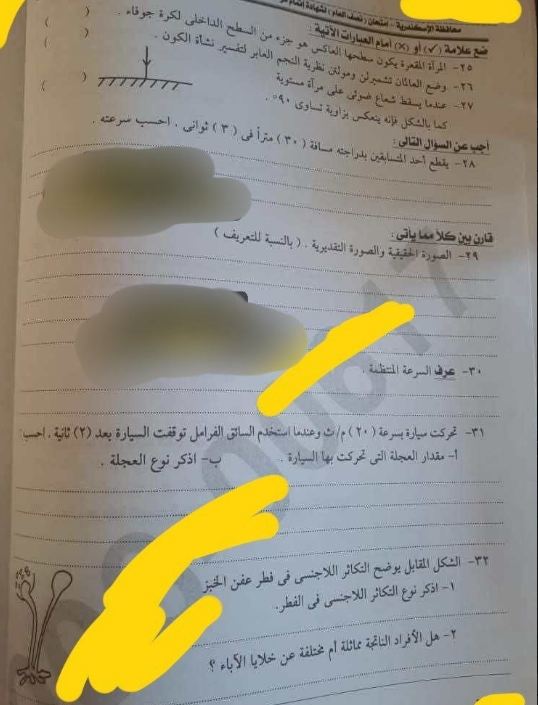 محافظة الإسكندرية - امتحان ( نصف العام ) لشهادة إتمام
ضع علامة (✓) أو (×) أمام العبارات الآتية :
٢٥- المرآة المقعرة يكون سطحها العاكس هو جزء من السطح الداخلى لكرة جوفاء . ( )
٢٦- وضع العالمان تشمبرلن ومولتن نظرية النجم العابر لتفسير نشأة الكون . ( )
٢٧- عندما يسقط شعاع ضوئى على مرآة مستوية ( )
كما بالشكل فإنه ينعكس بزاوية تساوى ٩٠° .
أجب عن السؤال التالى :
٢٨- يقطع أحد المتسابقين بدراجته مسافة ( ٣٠ ) متراً فى ( ٣ ) ثوانى . احسب سرعته .
قارن بين كلاً مما يأتى :
٢٩- الصورة الحقيقية والصورة التقديرية . ( بالنسبة للتعريف )
٣٠- عرف السرعة المنتظمة .
٣١- تحركت سيارة بسرعة ( ٢٠ ) م/ث وعندما استخدم السائق الفرامل توقفت السيارة بعد (٢) ثانية . احسب :
أ- مقدار العجلة التى تحركت بها السيارة . ب- اذكر نوع العجلة .
٣٢- الشكل المقابل يوضح التكاثر اللاجنسى فى فطر عفن الخبز
١- اذكر نوع التكاثر اللاجنسى فى الفطر.
٢- هل الأفراد الناتجة مماثلة أم مختلفة عن خلايا الآباء ؟